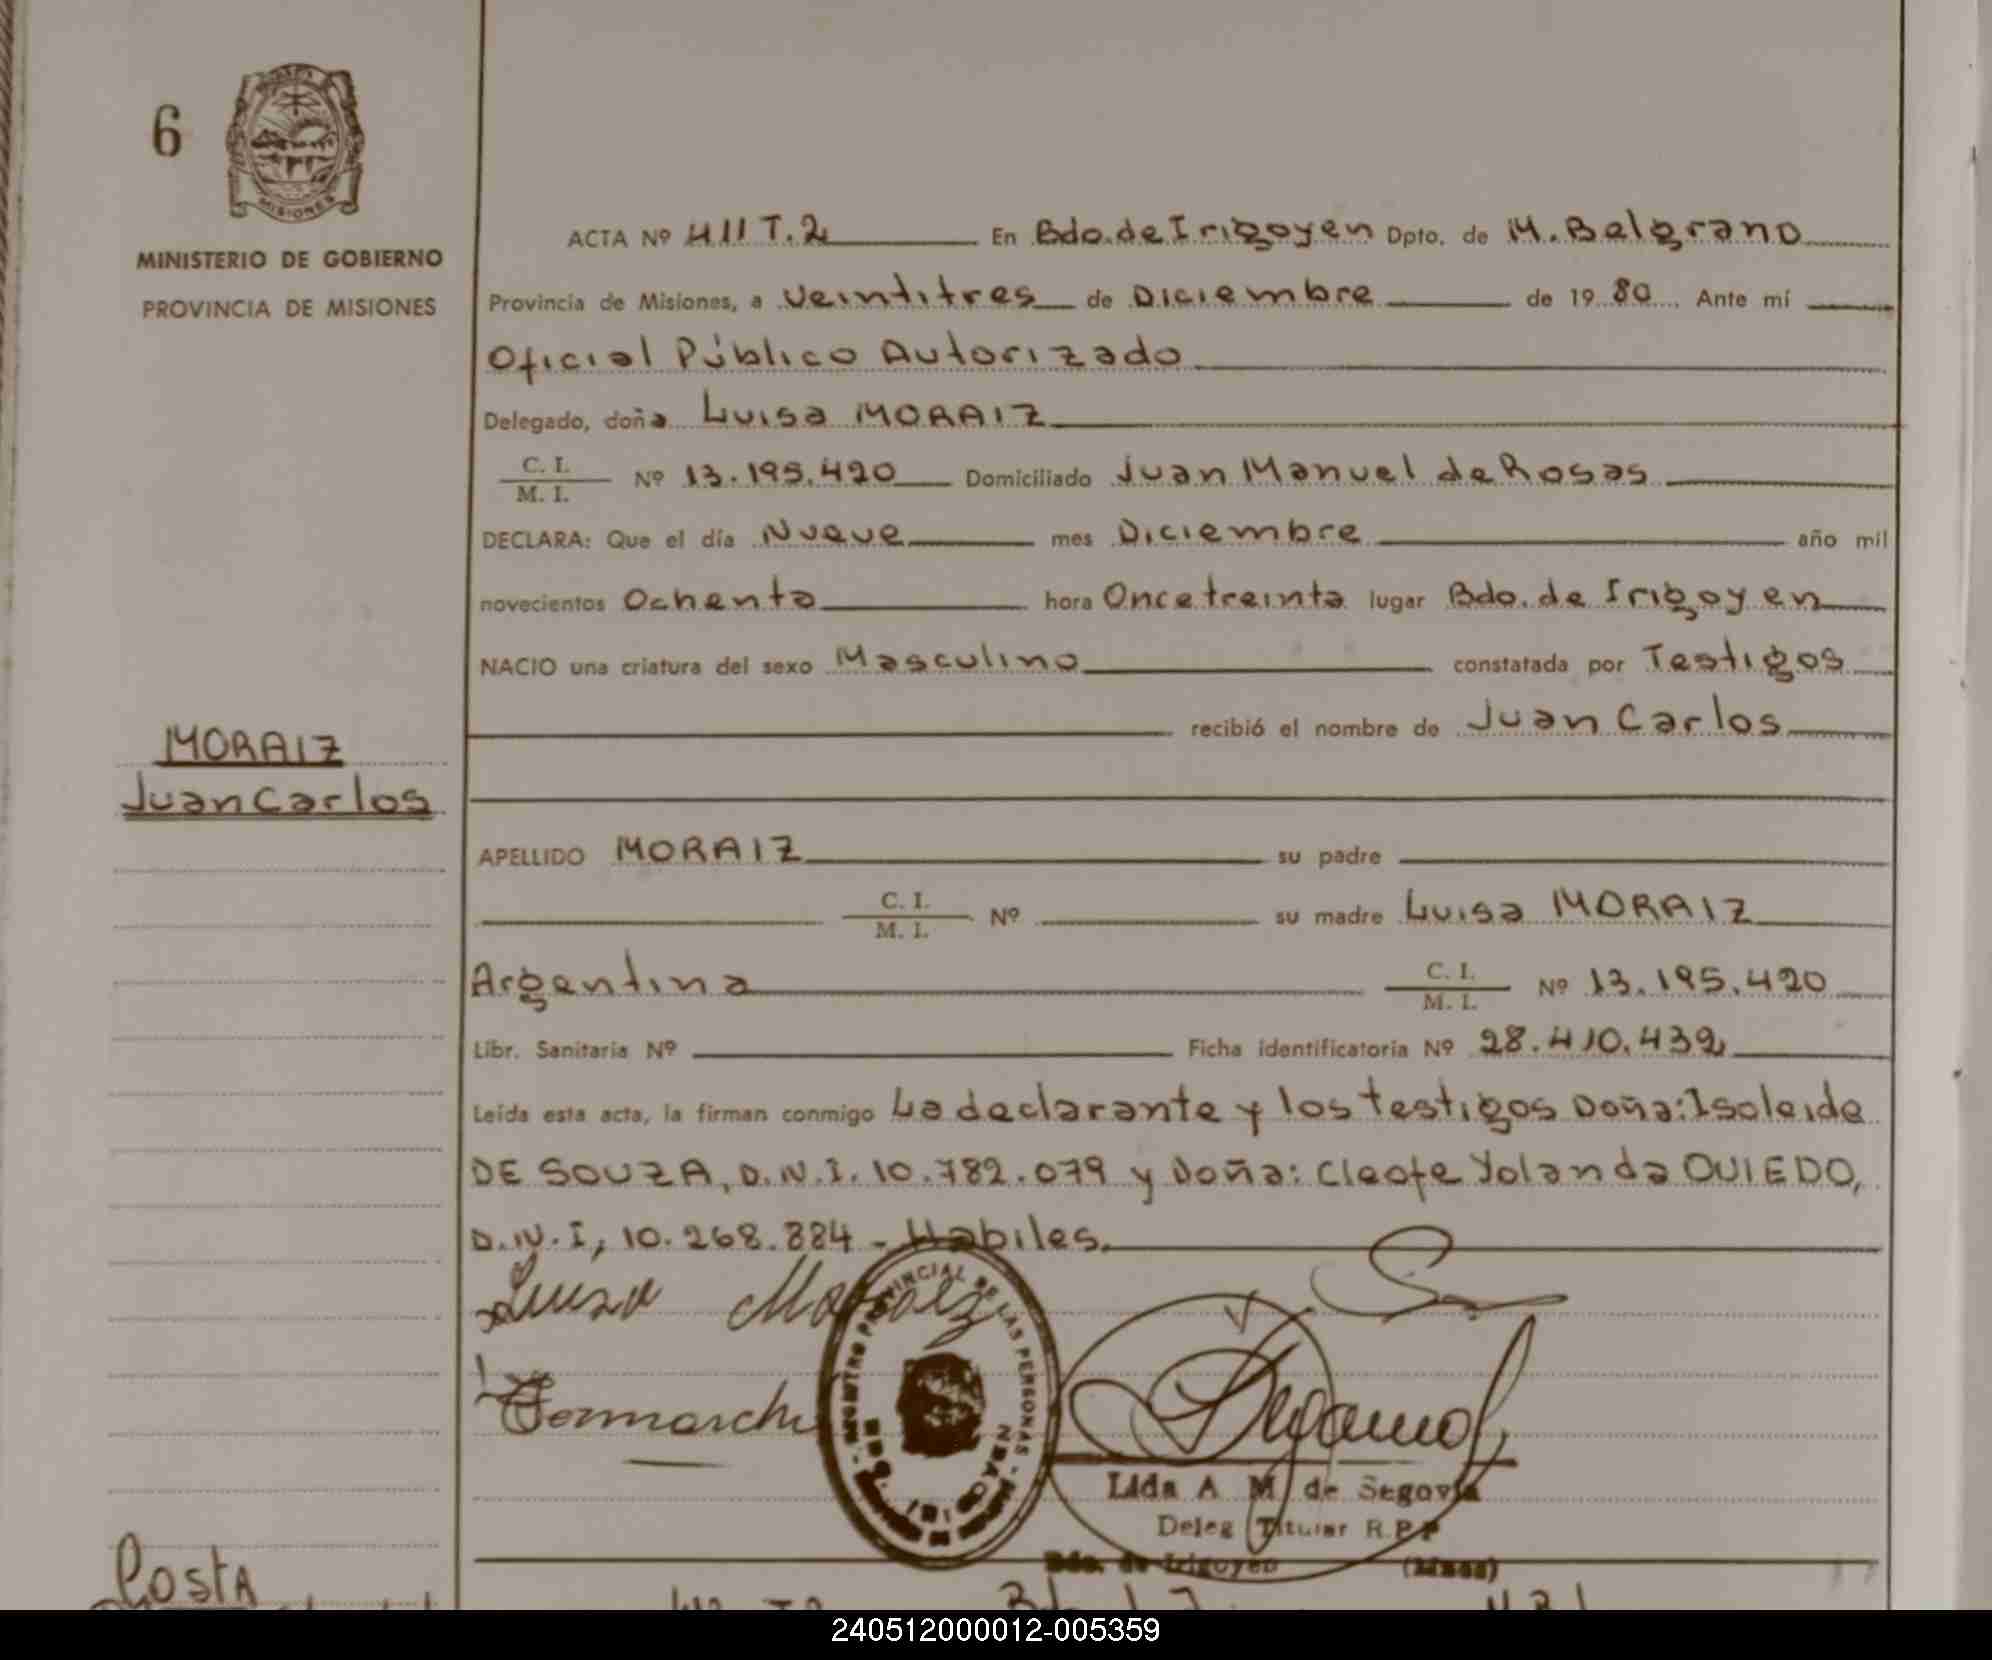 6
MISIONES
MINISTERIO DE GOBIERNO
PROVINCIA DE MISIONES
ACTA Nº 411 T.2 En Bdo. de Irigoyen Dpto. de M. Belgrano
Provincia de Misiones, a Veintitres de Diciembre de 19 80 Ante mí
Oficial Público Autorizado
Delegado, doña Luisa MORAIZ
C. I.
M. I. Nº 13.195.420 Domiciliado Juan Manuel de Rosas
DECLARA: Que el día Nueve mes Diciembre año mil
novecientos Ochenta hora Once treinta lugar Bdo. de Irigoyen
NACIO una criatura del sexo Masculino constatada por Testigos
recibió el nombre de Juan Carlos
MORAIZ
Juan Carlos
APELLIDO MORAIZ su padre
C. I.
M. I. Nº su madre Luisa MORAIZ
Argentina C. I.
M. I. Nº 13.195.420
Libr. Sanitaria Nº Ficha identificatoria Nº 28.410.432
Leída esta acta, la firman conmigo La declarante y los testigos Doña: Isoleide
DE SOUZA, D.N.I. 10.782.079 y Doña: Cleofe Yolanda OVIEDO,
D.N.I, 10.268.884 - Habiles.
Luisa Moraiz
REGISTRO PROVINCIAL DE LAS PERSONAS
Lida A M de Segovia
Deleg Titular R.P.P
Bdo. de Irigoyen (Mnes)
Costa
240512000012-005359